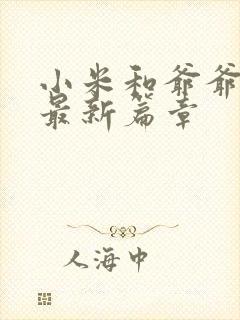 小米和爷爷
最新篇章
人海中